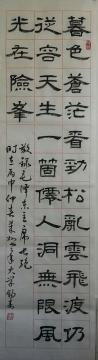 暮色蒼茫看勁松亂雲飛渡仍
從容天生一箇僊人洞無限風
光在險峯
敬錄毛澤東主席七絕
時在丙申仲春 大学